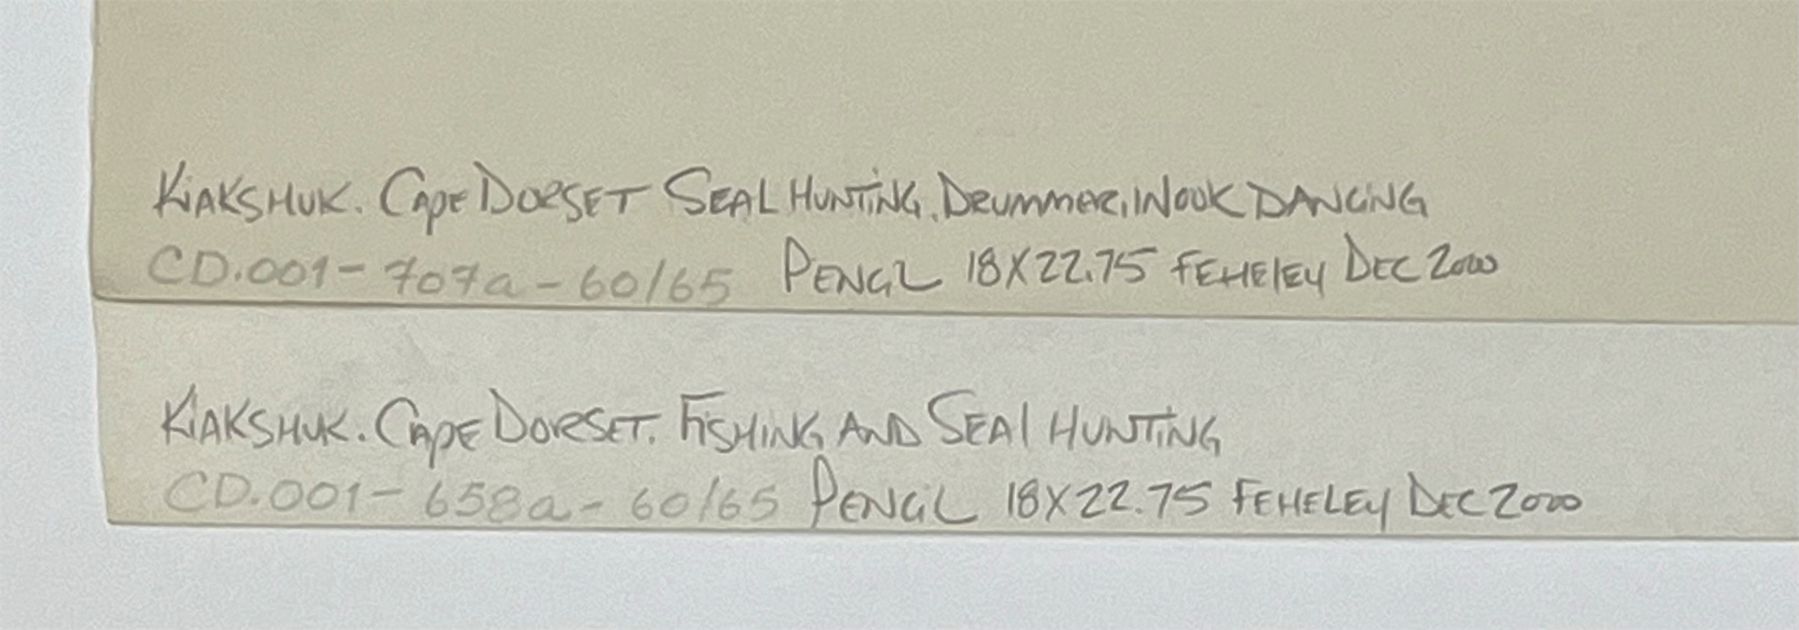 KIAKSHUK. CAPE DORSET SEAL HUNTING, DRUMMER, INUUK DANCING
CD.001-707a-60/65 PENCIL 18X22.75 FEHELEY DEC 2000
KIAKSHUK. CAPE DORSET. FISHING AND SEAL HUNTING
CD.001-658a-60/65 PENCIL 18X22.75 FEHELEY DEC 2000